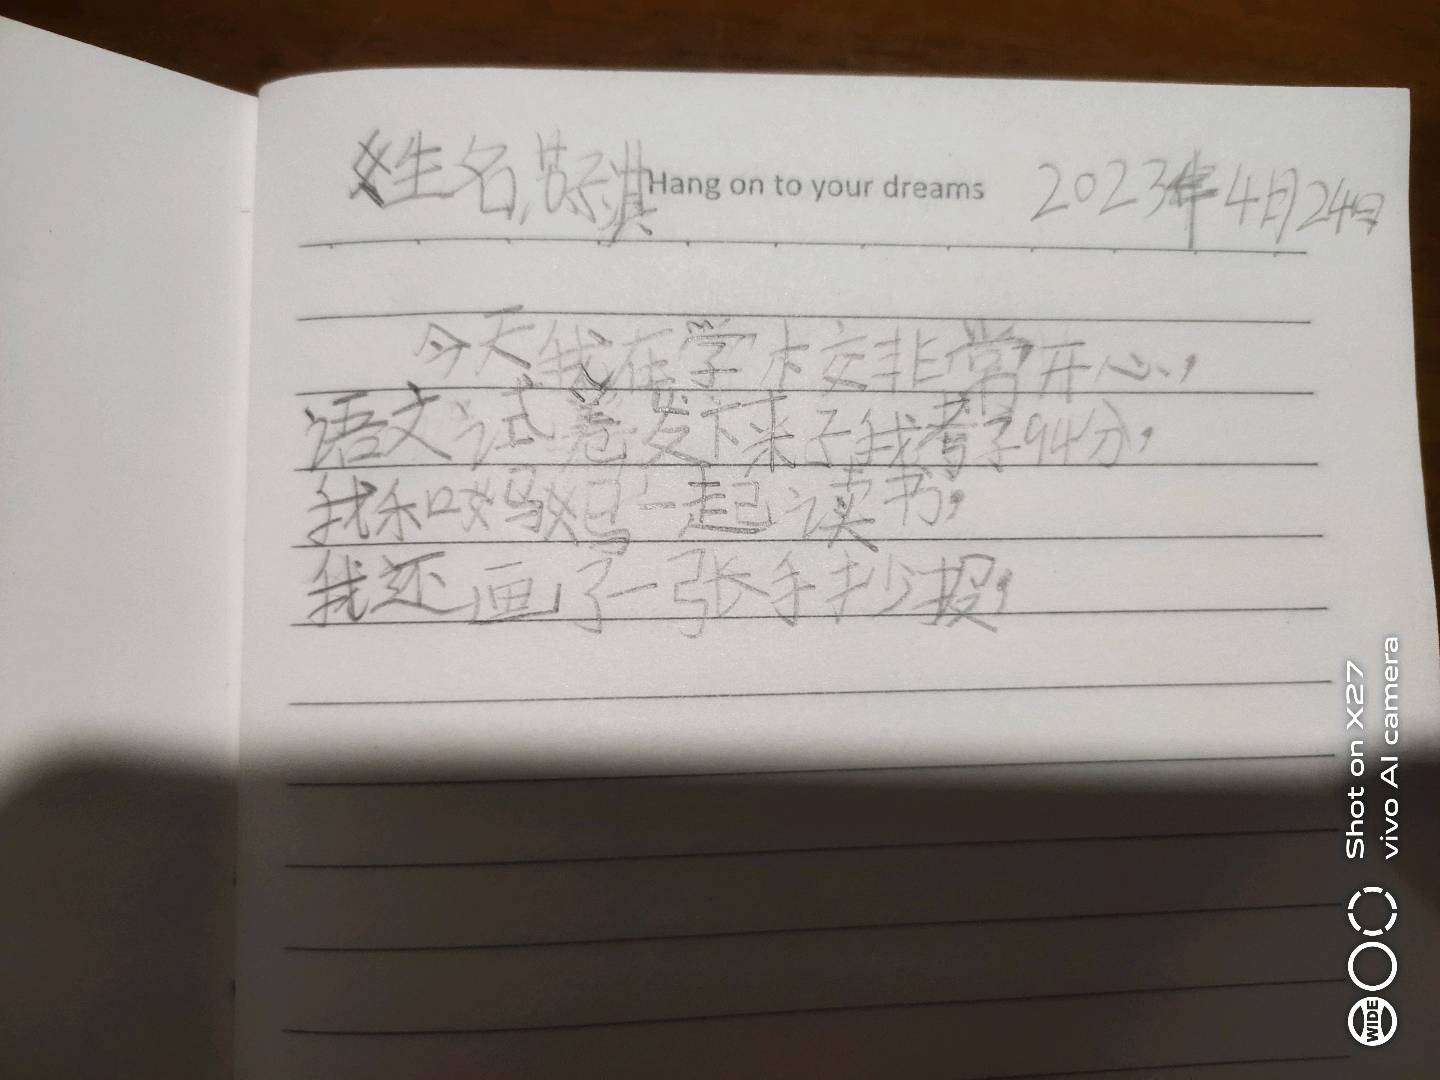 姓名,苏标淇 Hang on to your dreams 2023年4月24日
今天我在学校非常开心,
语文试卷发下来了我考了94分,
我和妈妈一起读书,
我还画了一张手抄报,
Shot on X27
vivo AI camera
WIDE